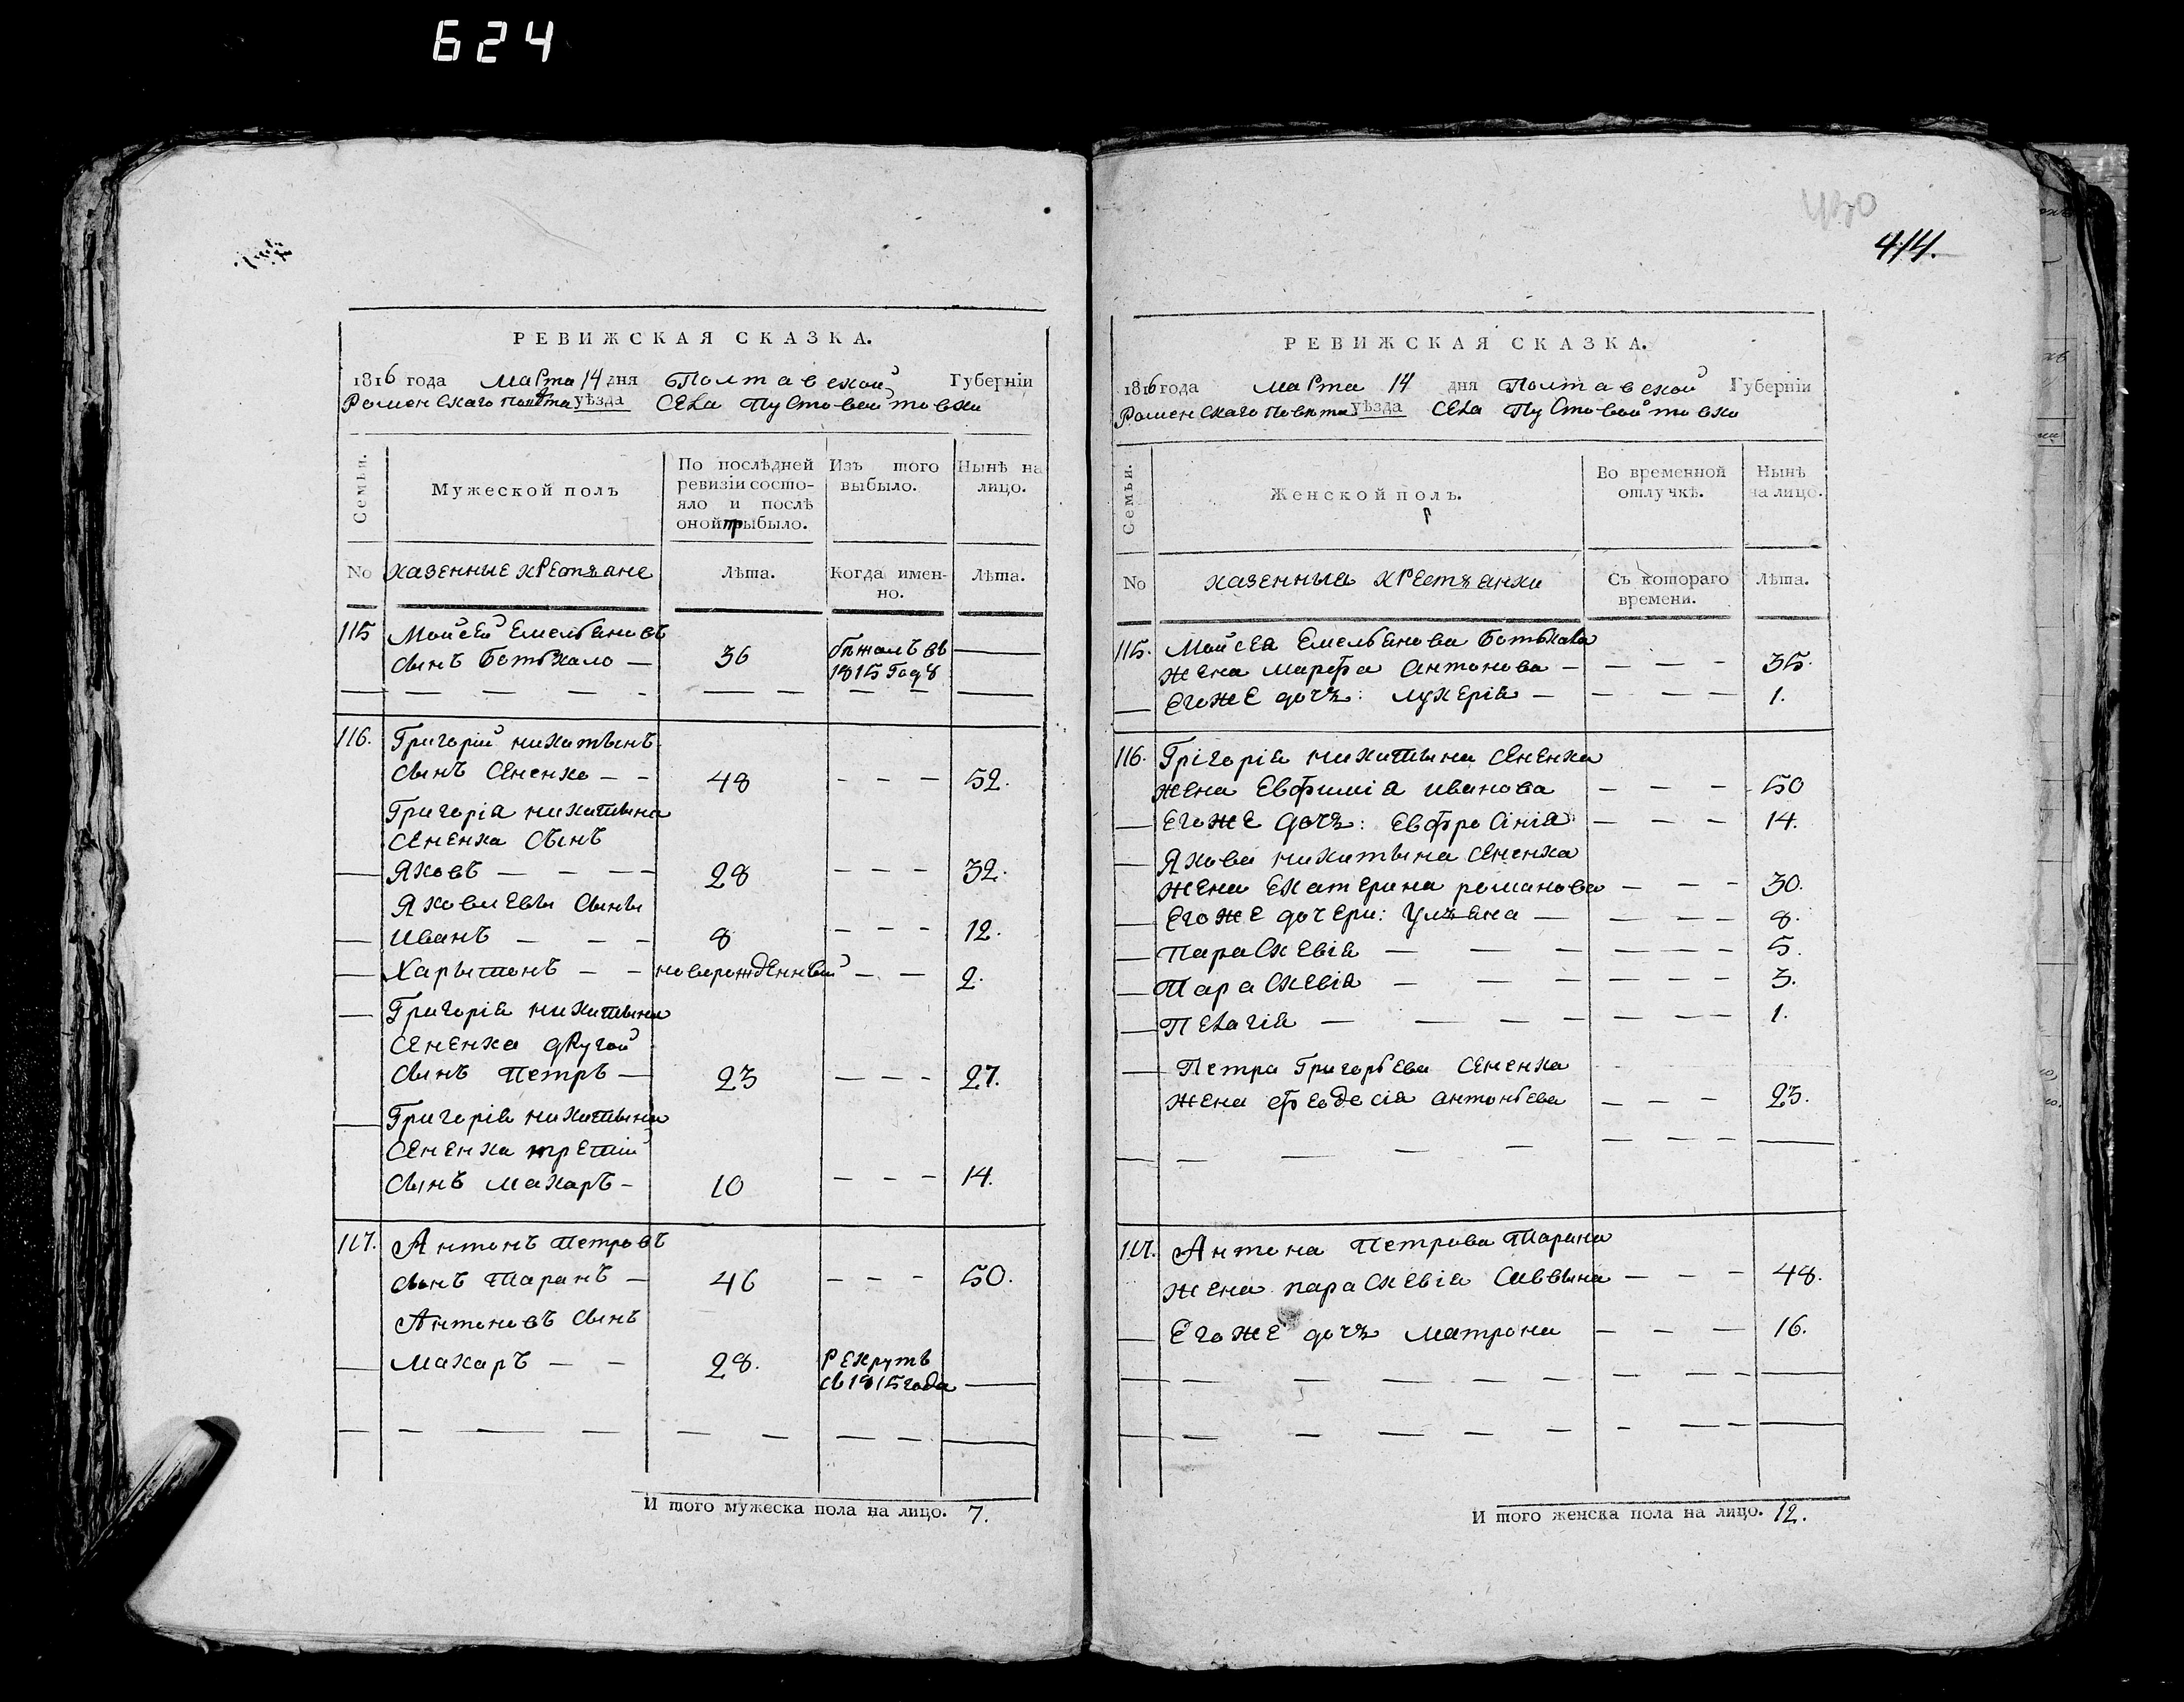 624
430
414.
РЕВИЖСКАЯ СКАЗКА.
1816 года Марта 14 дня Полтавской Губерніи
Роменскаго повѣта уѣзда села Пустовойтовки
Семьи.
Мужеской полъ
По послѣдней ревизіи состо-
яло и послѣ
оной прибыло.
Изъ того выбыло.
Нынѣ на лицо.
No казенные крестьяне
Лѣта.
Когда имен-
но.
Лѣта.
115 Мойсей Емельяновъ
сынъ Ботькало — 36 бѣжалъ въ
1815 году
116. Григорій никитынъ
сынъ Сененко — — 48 — — — 52.
Григорія никитына
Сененка сынъ
Яковъ — — — — 28 — — — 32.
Яковлевы сыны
Иванъ — — — 8 — — — 12.
Харытонъ — — новорожденный — — 2.
Григорія никитына
Сененка другой
сынъ Петръ — 23 — — — 27.
Григорія никитына
Сененка третій
сынъ Макаръ — 10 — — — 14.
117. Антонъ Петровъ
сынъ Таранъ — 46 — — — 50.
Антоновъ сынъ
Макаръ — — 28. рекрутъ
съ 1815 года
И того мужеска пола на лицо. 7.
РЕВИЖСКАЯ СКАЗКА.
1816 года Марта 14 дня Полтавской Губерніи
Роменскаго повѣта уѣзда села Пустовойтовки
Семьи.
Женской полъ.
Во временной
отлучкѣ.
Нынѣ
на лицо.
No казенныя крестьянки
Съ котораго
времени.
Лѣта.
115. Мойсея Емельянова Ботькала
жена Марфа Антонова — — — — 35.
Его же дочь: Лукерія — — — — 1.
116. Грігорія никитына Сененка
жена Евфимія Иванова — — — 50
Его же дочь: Евфросінія — — — 14.
Якова никитына Сененка
жена Екатерина романова — — — 30.
Его же дочери: Ульяна — — — — 8.
Параскевія — — — — — — — 5.
Параскевія — — — — — — — 3.
Пелагія — — — — — — — — 1.
Петра Григорьева Сененка
жена Феодосія Антоньева — — — 23.
117. Антона Петрова Тарана
жена параскевія Саввына — — — 48.
Его же дочь Матрона — — — 16.
И того женска пола на лицо. 12.